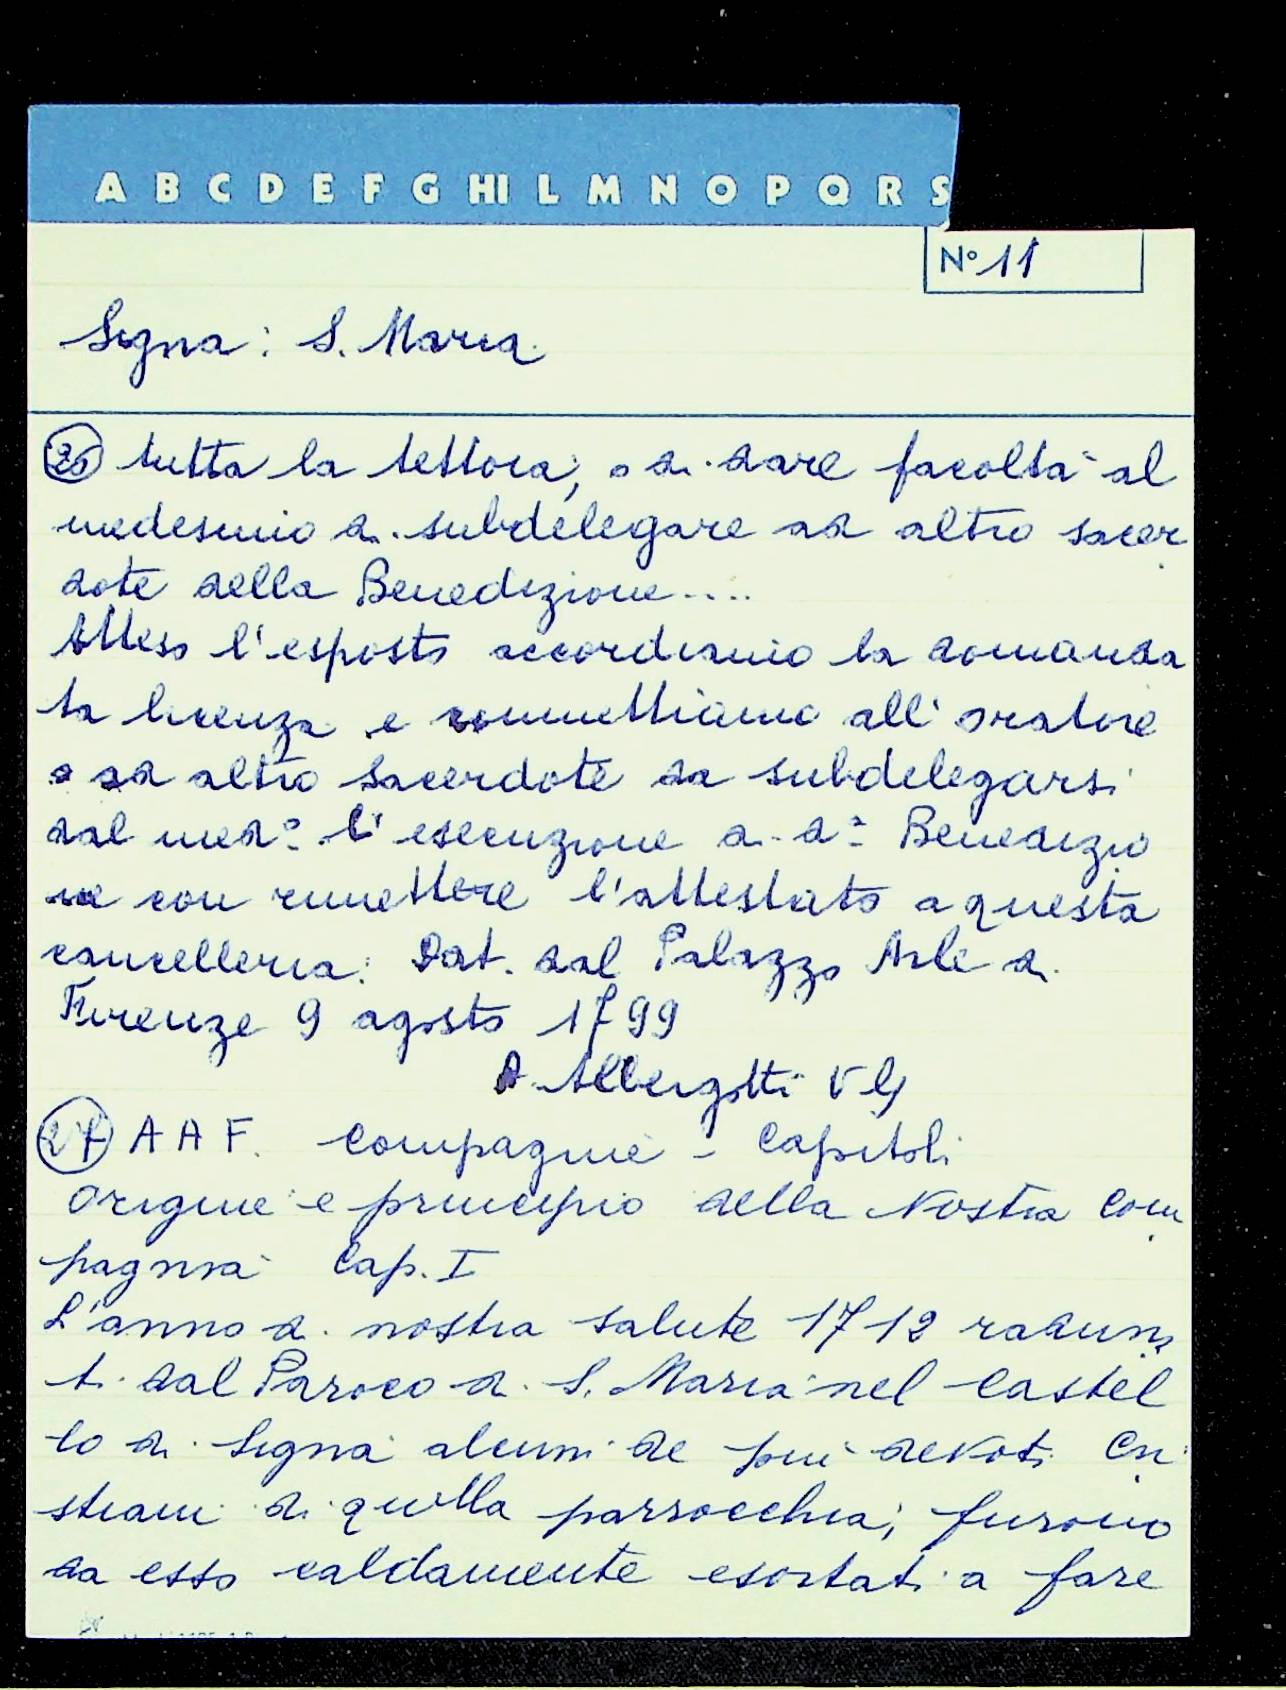 A B C D E F G HI L M N O P Q R S
N° 11
Signa: S. Maria
26 tutta la tettoia, o di dare facoltà al
medesimo di subdelegare ad altro sacer
dote della Benedizione....
Atteso l'esposto accordiamo la domanda
ta licenza e commettiamo all' oratore
o ad altro sacerdote da subdelegarsi
dal med.° l'esecuzione di d.a Benedizio
ne con rimettere l'attestato a questa
cancelleria. Dat. dal Palazzo Arle di
Firenze 9 agosto 1799
A Albergotti V G
27 A A F. Compagnie - Capitoli
Origine e principio della Nostra Com
pagnia Cap. I
L'anno di nostra salute 1712 raduna
ti dal Paroco di S. Maria nel Castel
lo di Signa alcuni de piu devoti Cri
stiani di quella parrocchia; furono
da esso caldamente esortati a fare